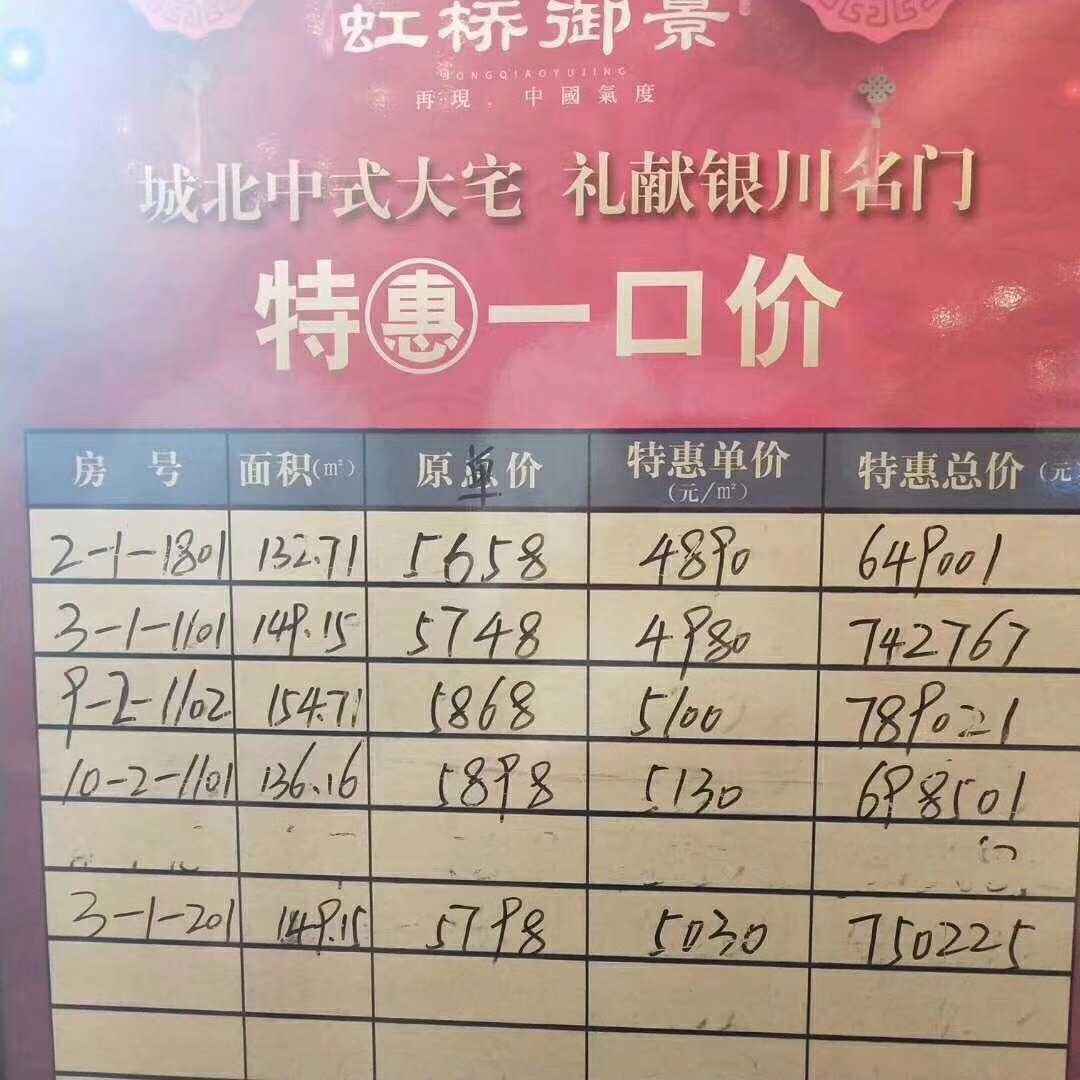 虹桥御景
HONGQIAOYUJING
再現．中國氣度
城北中式大宅 礼献银川名门
特惠一口价
房号 面积(m²) 原单价 特惠单价(元/m²) 特惠总价(元)
2-1-1801 132.71 5658 4890 649001
3-1-1101 149.15 5748 4980 742767
9-2-1102 154.71 5868 5100 789021
10-2-1101 136.16 5898 5130 698501
3-1-201 149.15 5798 5030 750225